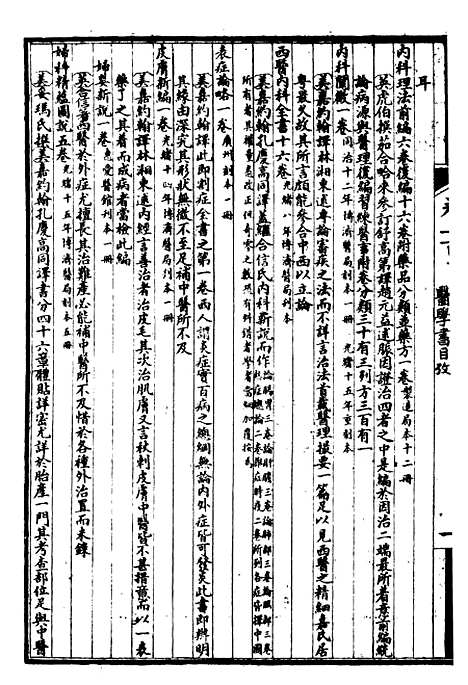 耳
內科理法前編六卷後編十六卷附藥品分類並藥方一卷製造局本十二冊
英虎伯撰茄合哈來參訂舒高第譯趙元益述脈因證治四者之中是編於因治二端最所着意前編統
論病源與醫理後編習練醫事附卷分類三十有三列方三百有一
內科闡微一卷同治十二年博濟醫局刻本一冊 光緒十五年重刻本
美嘉約翰譯林湘東述專論審疾之法而不詳言治法首載醫理撮要一篇足以見西醫之精細嘉氏居
粵最久故其所言頗能參合中西以立論
西醫內科全書十六卷光緒八年博濟醫局刻本六冊
美嘉約翰孔慶高同譯蓋繼合信氏內科新說而作
炎症論略一卷廣州刻本一冊
美嘉約翰譯此即割症全書之第一卷西人謂炎症實百病之總綱無論內外症皆可發炎此書即辨明
其緣由深究其形狀無微不至足補中醫所不及
皮膚新編一卷光緒十四年博濟醫局刻本一冊
美嘉約翰譯林湘東述內經言善治者治皮毛其次治肌膚又言秋刺皮膚中醫皆不甚措意而以一表
藥了之其着而成病者當檢此編
婦嬰新說一卷惠愛醫館刻本一冊
英合信著西醫於外症尤擅長其治難產必能補中醫所不及惜於各種外治置而未錄
婦科精蘊圖說五卷光緒十五年博濟醫局刻本五冊
美妥瑪氏撰美嘉約翰孔慶高同譯書分四十六章體貼詳密尤詳於胎產一門其考查部位足與中醫
卷一百 醫學書目攷 一